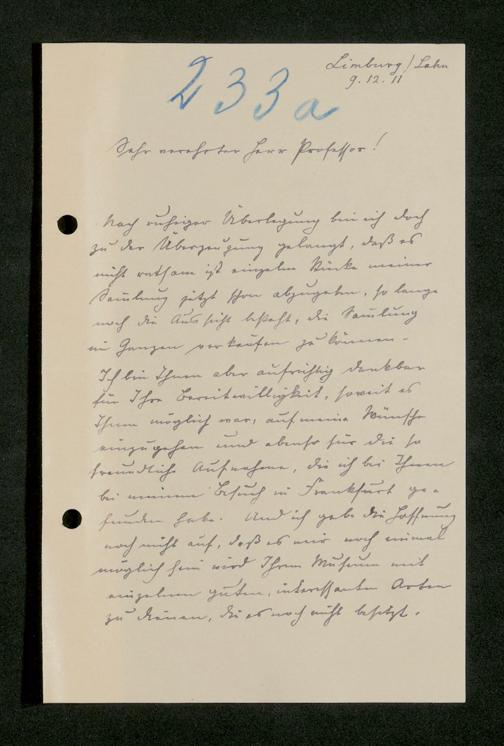 Limburg/Lahn
9.12.11
233a
Sehr verehrter Herr Professor!
Nach ruhiger Überlegung bin ich doch
zu der Überzeugung gelangt, daß es
nicht ratsam ist einzelne Stücke meiner
Sammlung jetzt schon abzugeben, so lange
noch die Aussicht besteht, die Sammlung
im Ganzen verkaufen zu können.
Ich bin Ihnen aber aufrichtig dankbar
für Ihre Bereitwilligkeit, soweit es
Ihnen möglich war, auf meine Wünsche
einzugehen und ebenso für die so
freundliche Aufnahme, die ich bei Ihnen
bei meinem Besuch in Frankfurt ge=
funden habe. Und ich gebe die Hoffnung
noch nicht auf, daß es mir noch einmal
möglich sein wird Ihrem Museum mit
einzelnen guten, interessanten Arten
zu dienen, die es noch nicht besitzt.